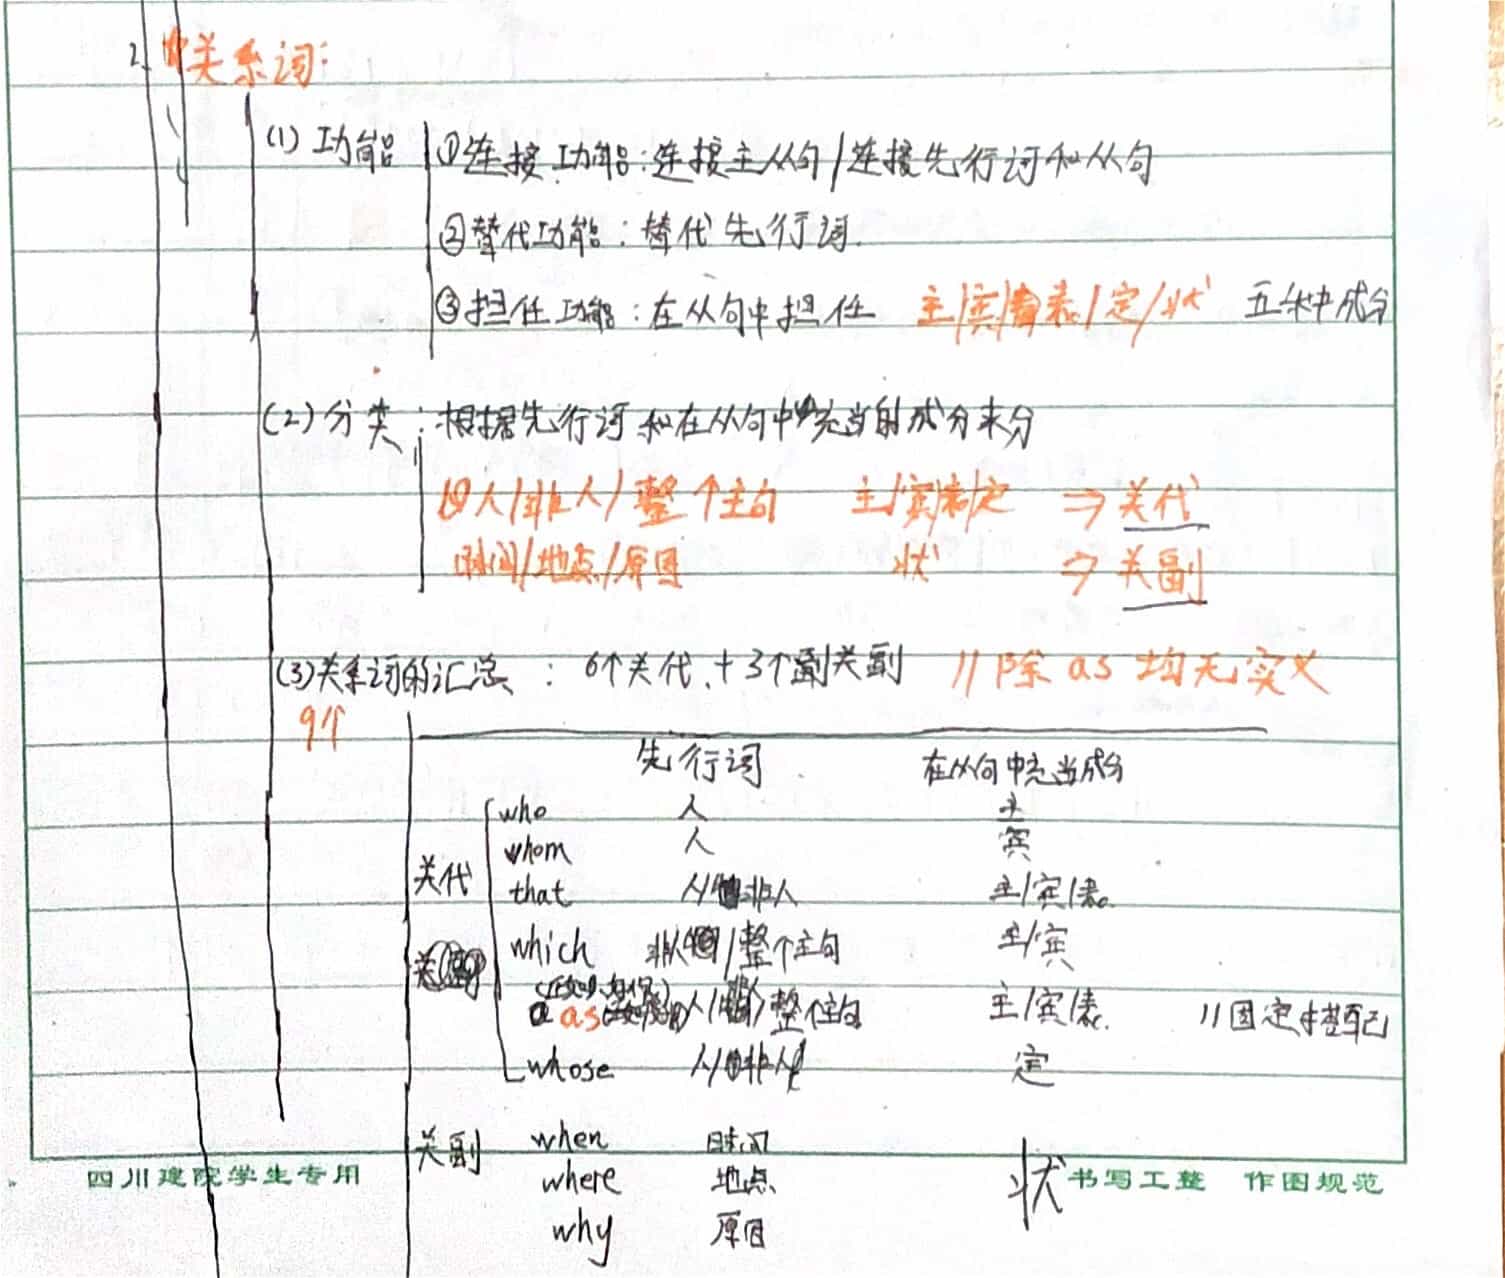 2. 关系词:
(1) 功能 ①连接功能:连接主从句/连接先行词和从句
②替代功能:替代先行词.
③担任功能:在从句中担任 主/宾/表/定/状 五种成分
(2)分类:根据先行词和在从句中充当的成分来分
人/非人/整个主句 主/宾/表/定 ⇒关代
时间/地点/原因 状 ⇒关副
(3)关系词的汇总: 6个关代.+3个关副 //除 as 均无实义
9个
先行词 在从句中充当成分
who 人 主
whom 人 宾
关代 that 人/非人 主/宾/表
which 非人/整个主句 主/宾
as 人/非人/整个主句 主/宾/表 //固定搭配
whose 人/非人 定
关副 when 时间
where 地点 状
why 原因
四川建院学生专用 书写工整 作图规范